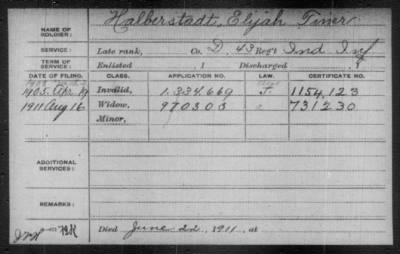 NAME OF SOLDIER: Halberstadt, Elijah Tiner
SERVICE: Late rank, Co. D, 43 Reg't Ind Inf
TERM OF SERVICE: Enlisted , 1 Discharged , 1
DATE OF FILING. CLASS. APPLICATION NO. LAW. CERTIFICATE NO.
1905. Apr 19 Invalid, 1.334.669 1154.123
1911 Aug 16 Widow, 970303 731230
Minor,
ADDITIONAL SERVICES:
REMARKS:
Died June 22, 1911, at